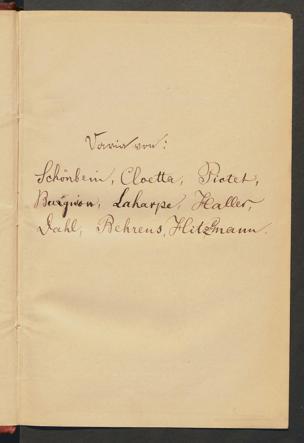 Varia von:
Schönbein, Cloetta, Pictet,
Burgwon, Laharpe, Haller,
Dahl, Behrens, Hitzmann.